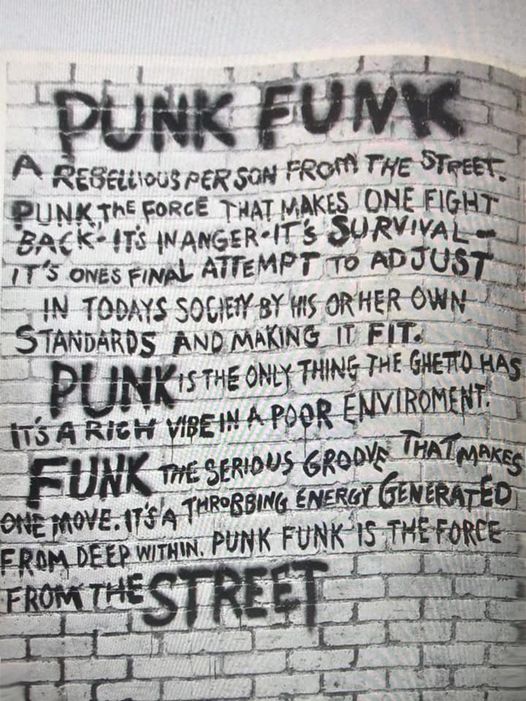 PUNK FUNK
A REBELLIOUS PERSON FROM THE STREET.
PUNK THE FORCE THAT MAKES ONE FIGHT
BACK-ITS IN ANGER-IT'S SURVIVAL-
IT'S ONES FINAL ATTEMPT TO ADJUST
IN TODAYS SOCIETY BY HIS OR HER OWN
STANDARDS AND MAKING IT FIT.
PUNK IS THE ONLY THING THE GHETTO HAS
IT'S A RICH VIBE IN A POOR ENVIROMENT.
FUNK THE SERIOUS GROOVE THAT MAKES
ONE MOVE. IT'S A THROBBING ENERGY GENERATED
FROM DEEP WITHIN. PUNK FUNK IS THE FORCE
FROM THE STREET